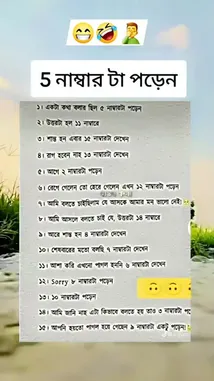 5 নাম্বার টা পড়েন
১। একটা কথা বলার ছিল ৫ নাম্বারটা পড়েন
২। উত্তরটা হল ১১ নাম্বারে
৩। শান্ত হন এবার ১৫ নাম্বারটা দেখেন
৪। রাগ হবেন নাহ ১৩ নাম্বারটা দেখেন
৫। আগে ২ নাম্বারটা পড়েন
৬। রেগে গেলেন তো হেরে গেলেন এখন ১২ নাম্বারটা পড়েন
৭। আমি বলতে চাইছিলাম যে আসকে আমার মন ভালো নেই
৮। আমি আসলে বলতে চাই যে, উত্তরটা ১৪ নাম্বারে
৯। আরে শান্ত হন ৪ নাম্বারটা দেখেন
১০। শেষবারের মতো বলছি ৭ নাম্বারটা দেখেন
১১। আশা করি এখনো পাগল হননি ৬ নাম্বারটা দেখেন
১২। Sorry ৮ নাম্বারটা পড়েন
১৩। ১০ নাম্বারটা পড়েন
১৪। আমি জানি নাহ এটা কিভাবে বলতে হয় তাও ৩ নাম্বারটা
১৫। আপনি হয়তো পাগল হয়ে গেছেন ৯ নাম্বারটা একটু পড়েন